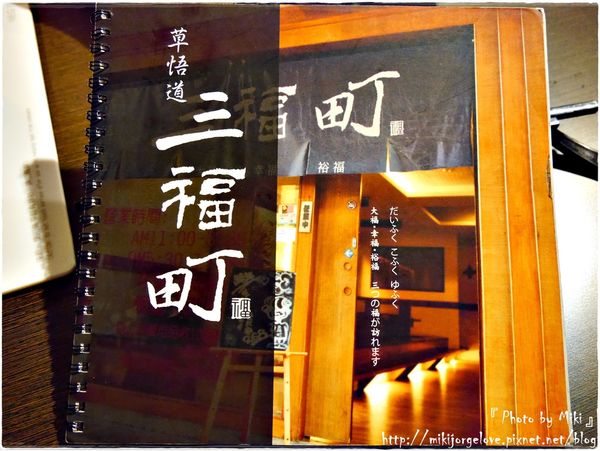 草悟道
三福町
福
福町
福
幸福
裕福
営業中
営業時間
AM11:00
だいふく こふく ゆふく
大福・幸福・裕福 三つの福が訪れます
『 Photo by Miki 』
http://mikijorgelove.pixnet.net/blog